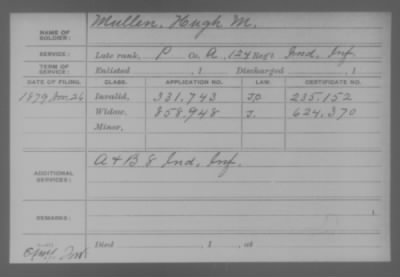 NAME OF SOLDIER: Mullen, Hugh M.
SERVICE: Late rank, P Co. A, 124 Reg't Ind. Inf.
TERM OF SERVICE: Enlisted , 1 Discharged , 1
DATE OF FILING. CLASS. APPLICATION NO. LAW. CERTIFICATE NO.
1879 Nov. 26 Invalid, 331,743 235,152
Widow, 858,948 J. 624,370
Minor,
ADDITIONAL SERVICES: A & B 8 Ind. Inf.
REMARKS:
Died , 1 , at